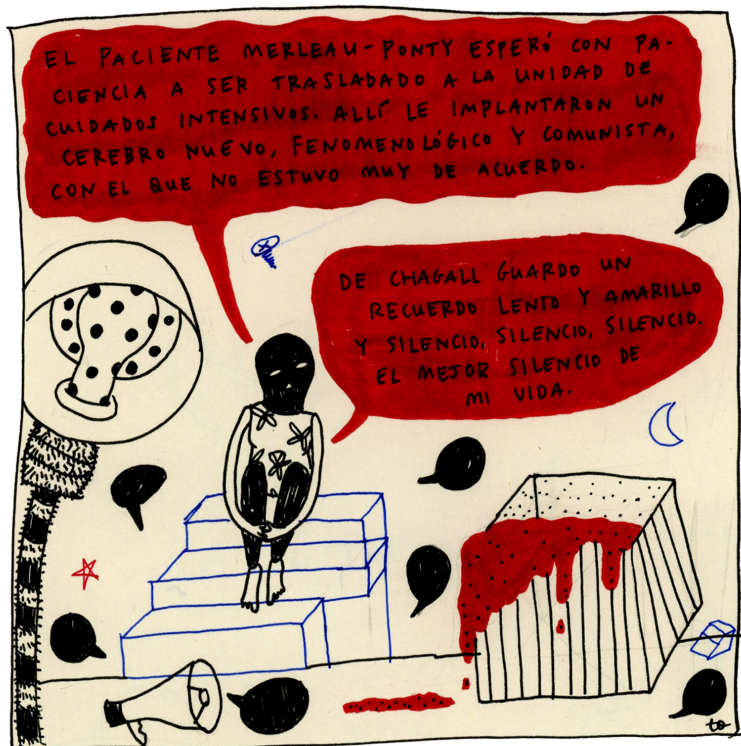 EL PACIENTE MERLEAU-PONTY ESPERÓ CON PA-
CIENCIA A SER TRASLADADO A LA UNIDAD DE
CUIDADOS INTENSIVOS. ALLÍ LE IMPLANTARON UN
CEREBRO NUEVO, FENOMENOLÓGICO Y COMUNISTA,
CON EL QUE NO ESTUVO MUY DE ACUERDO.
DE CHAGALL GUARDO UN
RECUERDO LENTO Y AMARILLO
Y SILENCIO, SILENCIO, SILENCIO.
EL MEJOR SILENCIO DE
MI VIDA.
to